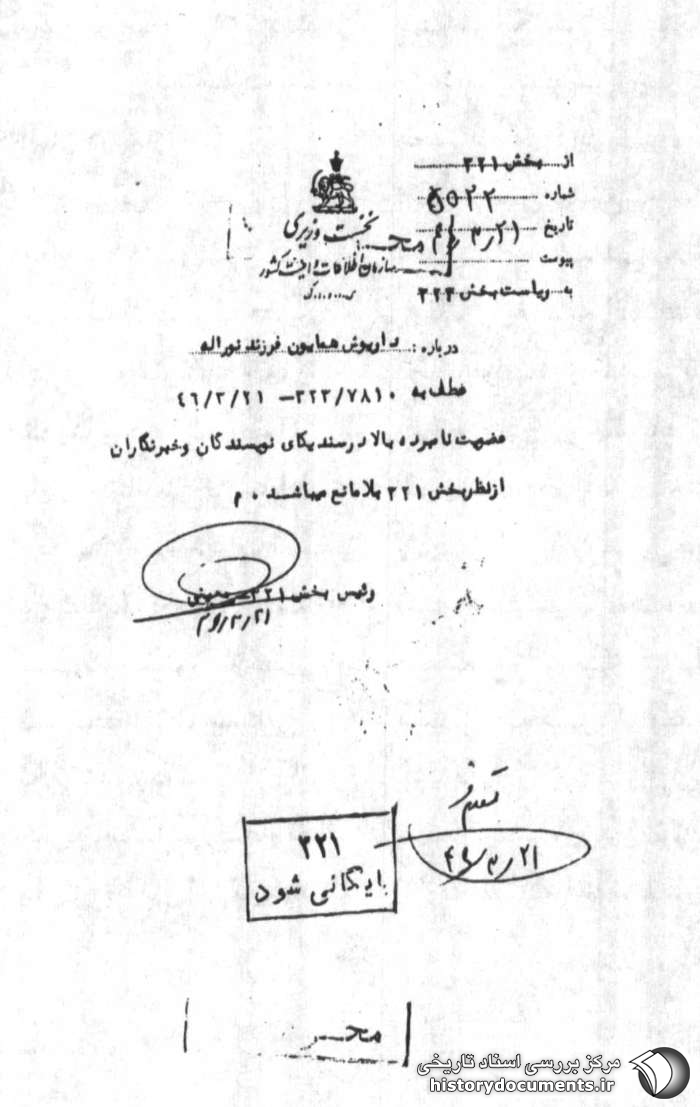 از بخش ۳۲۱
شماره ۵۰۲۲
تاریخ ۴۶/۳/۲۱
پیوست
به ریاست بخش ۳۲۳
نخست وزیری
سازمان اطلاعات و امنیت کشور
س.......ک
درباره : داریوش همایون فرزند نوراله
عطف به ۳۲۳/۷۸۱۰ - ۴۶/۳/۲۱
عضویت نامبرده بالا در سندیکای نویسندگان و خبرنگاران
از نظر بخش ۳۲۱ بلامانع میباشد . م
رئیس بخش ۳۲۱-
۴۶/۳/۲۱
۴۶/۳/۲۱
۳۲۱
بایگانی شود
مرکز بررسی اسناد تاریخی
historydocuments.ir